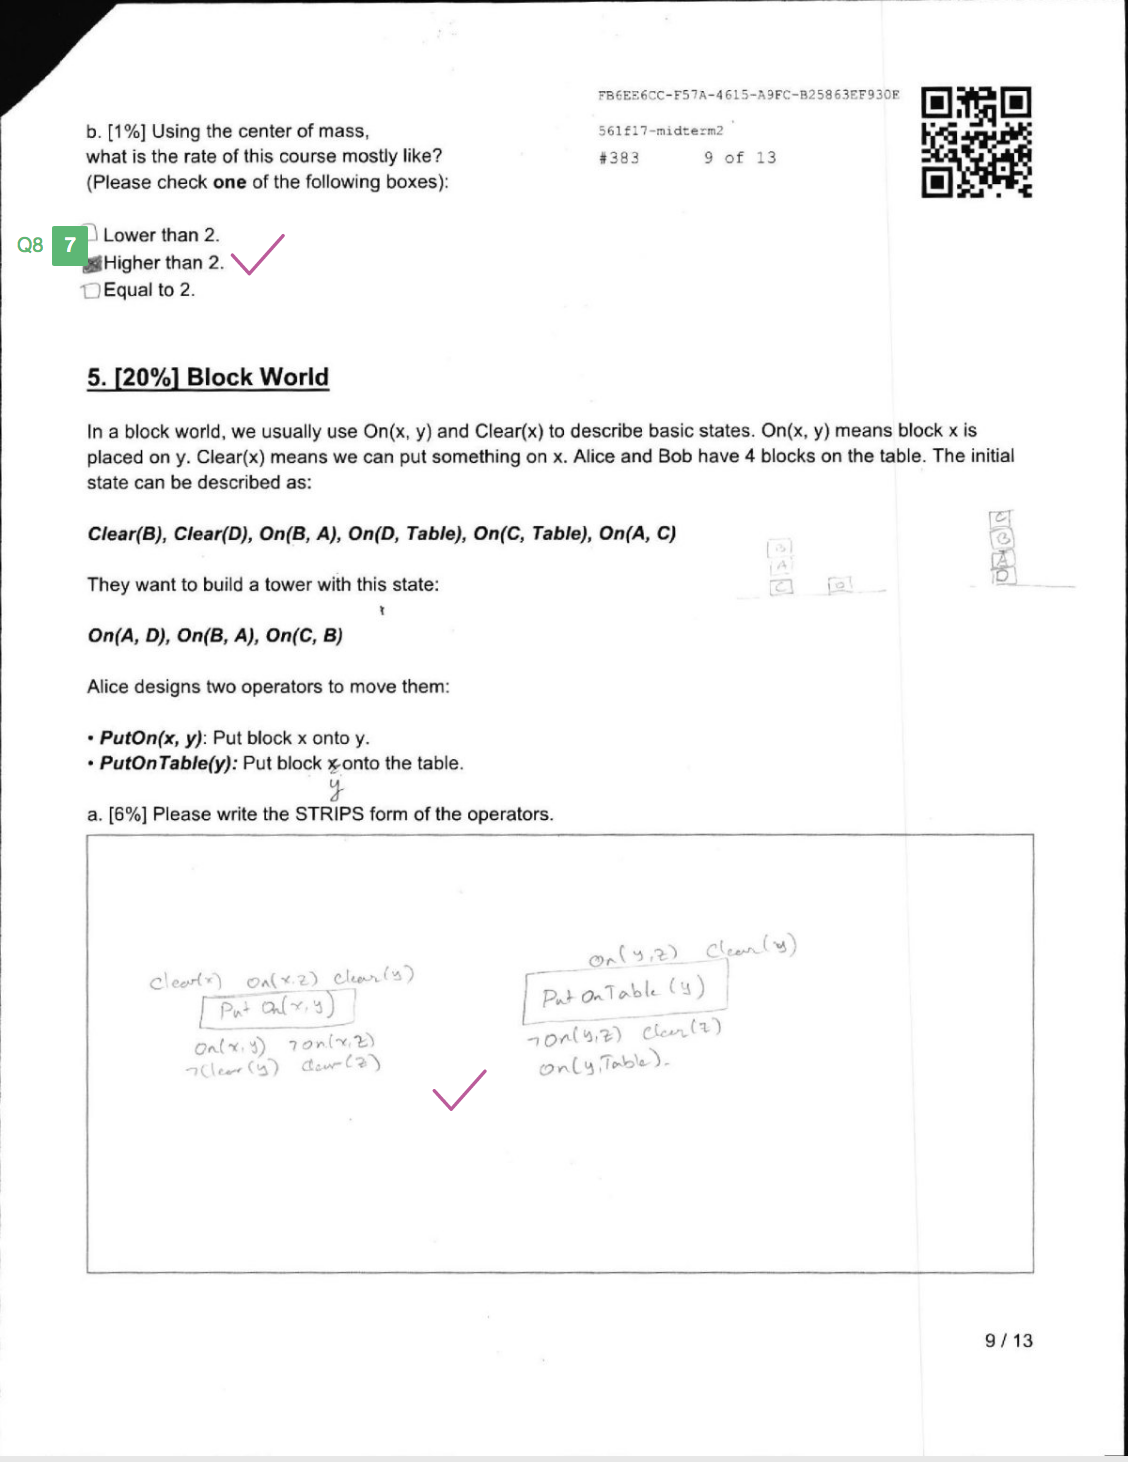 FB6EE6CC-F57A-4615-A9FC-B25863EF930E
561f17-midterm2
#383 9 of 13
b. [1%] Using the center of mass,
what is the rate of this course mostly like?
(Please check one of the following boxes):
Q8 7
Lower than 2.
Higher than 2.
Equal to 2.
5. [20%] Block World
In a block world, we usually use On(x, y) and Clear(x) to describe basic states. On(x, y) means block x is
placed on y. Clear(x) means we can put something on x. Alice and Bob have 4 blocks on the table. The initial
state can be described as:
Clear(B), Clear(D), On(B, A), On(D, Table), On(C, Table), On(A, C)
B
A
C D
C
B
A
D
They want to build a tower with this state:
On(A, D), On(B, A), On(C, B)
Alice designs two operators to move them:
• PutOn(x, y): Put block x onto y.
• PutOnTable(y): Put block x onto the table.
y
a. [6%] Please write the STRIPS form of the operators.
Clear(x) On(x,z) Clear(y)
Put On(x,y)
On(x,y) ¬on(x,z)
¬Clear(y) clear(z)
On(y,z) Clear(y)
Put OnTable (y)
¬on(y,z) Clear(z)
on(y,Table).
9 / 13